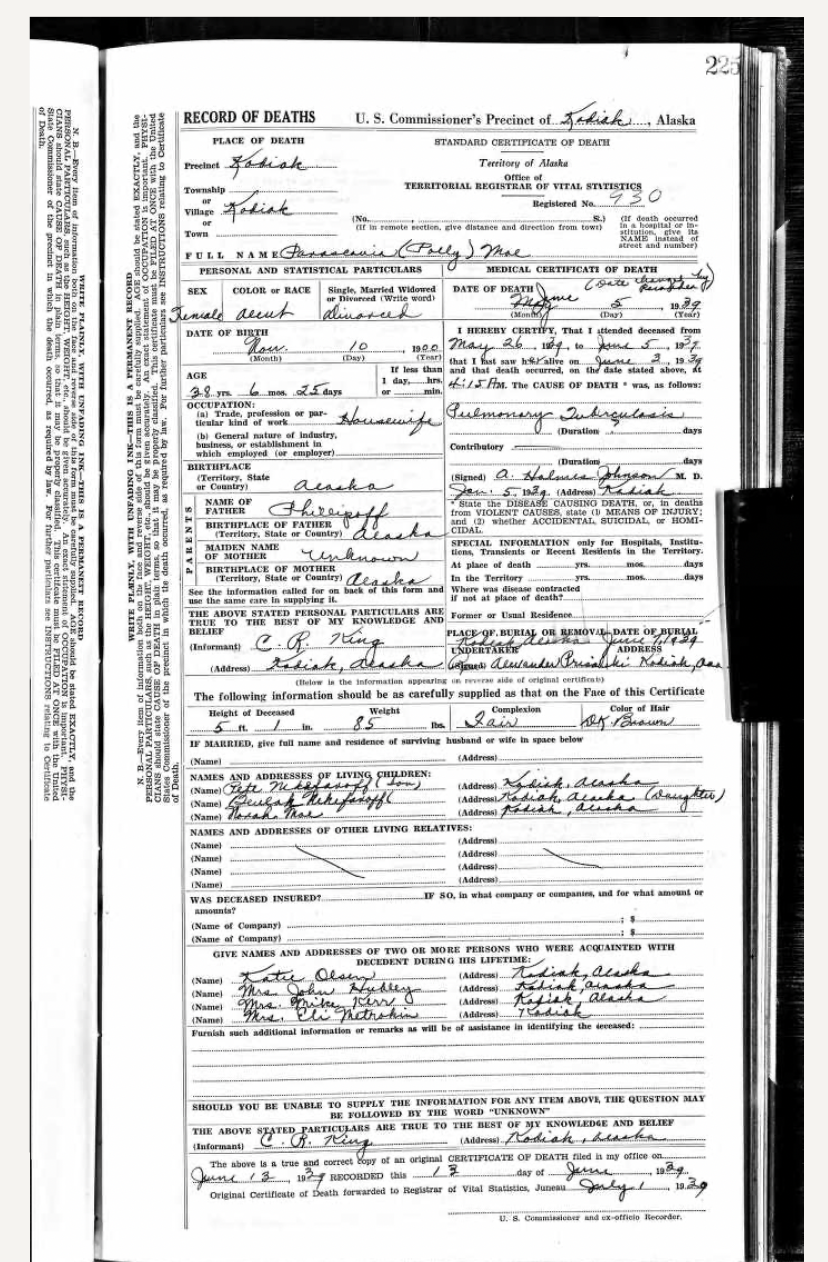 225
RECORD OF DEATHS U. S. Commissioner's Precinct of Kodiak, Alaska
PLACE OF DEATH
Precinct Kodiak
Township
or
Village Kodiak
or
Town
STANDARD CERTIFICATE OF DEATH
Territory of Alaska
Office of
TERRITORIAL REGISTRAR OF VITAL STATISTICS
Registered No. 930
(No. , S.)
(If in remote section, give distance and direction from town)
(If death occurred
in a hospital or in-
stitution, give its
NAME instead of
street and number)
FULL NAME (Polly) Moe
PERSONAL AND STATISTICAL PARTICULARS
SEX COLOR OR RACE Single, Married Widowed
or Divorced (Write word)
Female Aleut divorced
DATE OF BIRTH
Nov. 10 1900
(Month) (Day) (Year)
AGE
38 yrs. 6 mos. 25 days
If less than
1 day, hrs.
or min.
OCCUPATION:
(a) Trade, profession or par-
ticular kind of work Housewife
(b) General nature of industry,
business, or establishment in
which employed (or employer)
BIRTHPLACE
(Territory, State
or Country) Alaska
PARENTS
NAME OF
FATHER Phillipoff
BIRTHPLACE OF FATHER
(Territory, State or Country) Alaska
MAIDEN NAME
OF MOTHER Unknown
BIRTHPLACE OF MOTHER
(Territory, State or Country) Alaska
See the information called for on back of this form and
use the same care in supplying it.
THE ABOVE STATED PERSONAL PARTICULARS ARE
TRUE TO THE BEST OF MY KNOWLEDGE AND
BELIEF
(Informant) C. R. King
(Address) Kodiak, Alaska
MEDICAL CERTIFICATE OF DEATH
(Date changed by
Recorder)
DATE OF DEATH
May June 5 1939
(Month) (Day) (Year)
I HEREBY CERTIFY, That I attended deceased from
May 26, 1939, to June 5, 1939
that I last saw her alive on June 3, 1939
and that death occurred, on the date stated above, at
4:15 PM. The CAUSE OF DEATH * was, as follows:
Pulmonary Tuberculosis
(Duration) days
Contributory
(Duration) days
(Signed) A. Holmes Johnson M. D.
Jan. 5, 1939 (Address) Kodiak
* State the DISEASE CAUSING DEATH, or, in deaths
from VIOLENT CAUSES, state (1) MEANS OF INJURY;
and (2) whether ACCIDENTAL, SUICIDAL, or HOMI-
CIDAL.
SPECIAL INFORMATION only for Hospitals, Institu-
tions, Transients or Recent Residents in the Territory.
At place of death yrs. mos. days
In the Territory yrs. mos. days
Where was disease contracted
if not at place of death?
Former or Usual Residence
PLACE OF BURIAL OR REMOVAL DATE OF BURIAL
Kodiak Alaska June 7, 1939
UNDERTAKER ADDRESS
(Signed) Alexander Kodiak,
(Below is the information appearing on reverse side of original certificate)
The following information should be as carefully supplied as that on the Face of this Certificate
Height of Deceased Weight Complexion Color of Hair
5 ft. 1 in. 85 lbs. Fair Dk Brown
IF MARRIED, give full name and residence of surviving husband or wife in space below
(Name) (Address)
NAMES AND ADDRESSES OF LIVING CHILDREN:
(Name) Pete Nekeferoff (Son) (Address) Kodiak, Alaska
(Name) Beulah Nekeferoff (Address) Kodiak, Alaska (Daughter)
(Name) Norah Moe (Address) Kodiak, Alaska
NAMES AND ADDRESSES OF OTHER LIVING RELATIVES:
(Name) (Address)
(Name) (Address)
(Name) (Address)
(Name) (Address)
WAS DECEASED INSURED? IF SO, in what company or companies, and for what amount or
amounts?
(Name of Company) ; $
(Name of Company) ; $
GIVE NAMES AND ADDRESSES OF TWO OR MORE PERSONS WHO WERE ACQUAINTED WITH
DECEDENT DURING HIS LIFETIME:
(Name) Katie Olsen (Address) Kodiak, Alaska
(Name) Mrs. John Hubley (Address) Kodiak, Alaska
(Name) Mrs. Mike Kerr (Address) Kodiak, Alaska
(Name) Mrs. Eli Metrokin (Address) Kodiak
Furnish such additional information or remarks as will be of assistance in identifying the deceased:
SHOULD YOU BE UNABLE TO SUPPLY THE INFORMATION FOR ANY ITEM ABOVE, THE QUESTION MAY
BE FOLLOWED BY THE WORD "UNKNOWN"
THE ABOVE STATED PARTICULARS ARE TRUE TO THE BEST OF MY KNOWLEDGE AND BELIEF
(Informant) C. R. King (Address) Kodiak, Alaska
The above is a true and correct copy of an original CERTIFICATE OF DEATH filed in my office on
June 13, 1939 RECORDED this 13 day of June, 1939
Original Certificate of Death forwarded to Registrar of Vital Statistics, Juneau July 1, 1939
U. S. Commissioner and ex-officio Recorder.
WRITE PLAINLY, WITH UNFADING INK—THIS IS A PERMANENT RECORD
N. B.—Every item of information both on the face and reverse side of this form must be carefully supplied. AGE should be stated EXACTLY, and the
PERSONAL PARTICULARS, such as the HEIGHT, WEIGHT, etc., should be given accurately. An exact statement of OCCUPATION is important. PHYSI-
CIANS should state CAUSE OF DEATH in plain terms, so that it may be properly classified. This certificate must be FILED AT ONCE with the United
States Commissioner of the precinct in which the death occurred, as required by law. For further particulars see INSTRUCTIONS relating to Certificate
of Death.
WRITE PLAINLY, WITH UNFADING INK—THIS IS A PERMANENT RECORD
N. B.—Every item of information both on the face and reverse side of this form must be carefully supplied. AGE should be stated EXACTLY, and the
PERSONAL PARTICULARS, such as the HEIGHT, WEIGHT, etc., should be given accurately. An exact statement of OCCUPATION is important. PHYSI-
CIANS should state CAUSE OF DEATH in plain terms, so that it may be properly classified. This certificate must be FILED AT ONCE with the United
State Commissioner of the precinct in which the death occurred, as required by law. For further particulars see INSTRUCTIONS relating to Certificate
of Death.